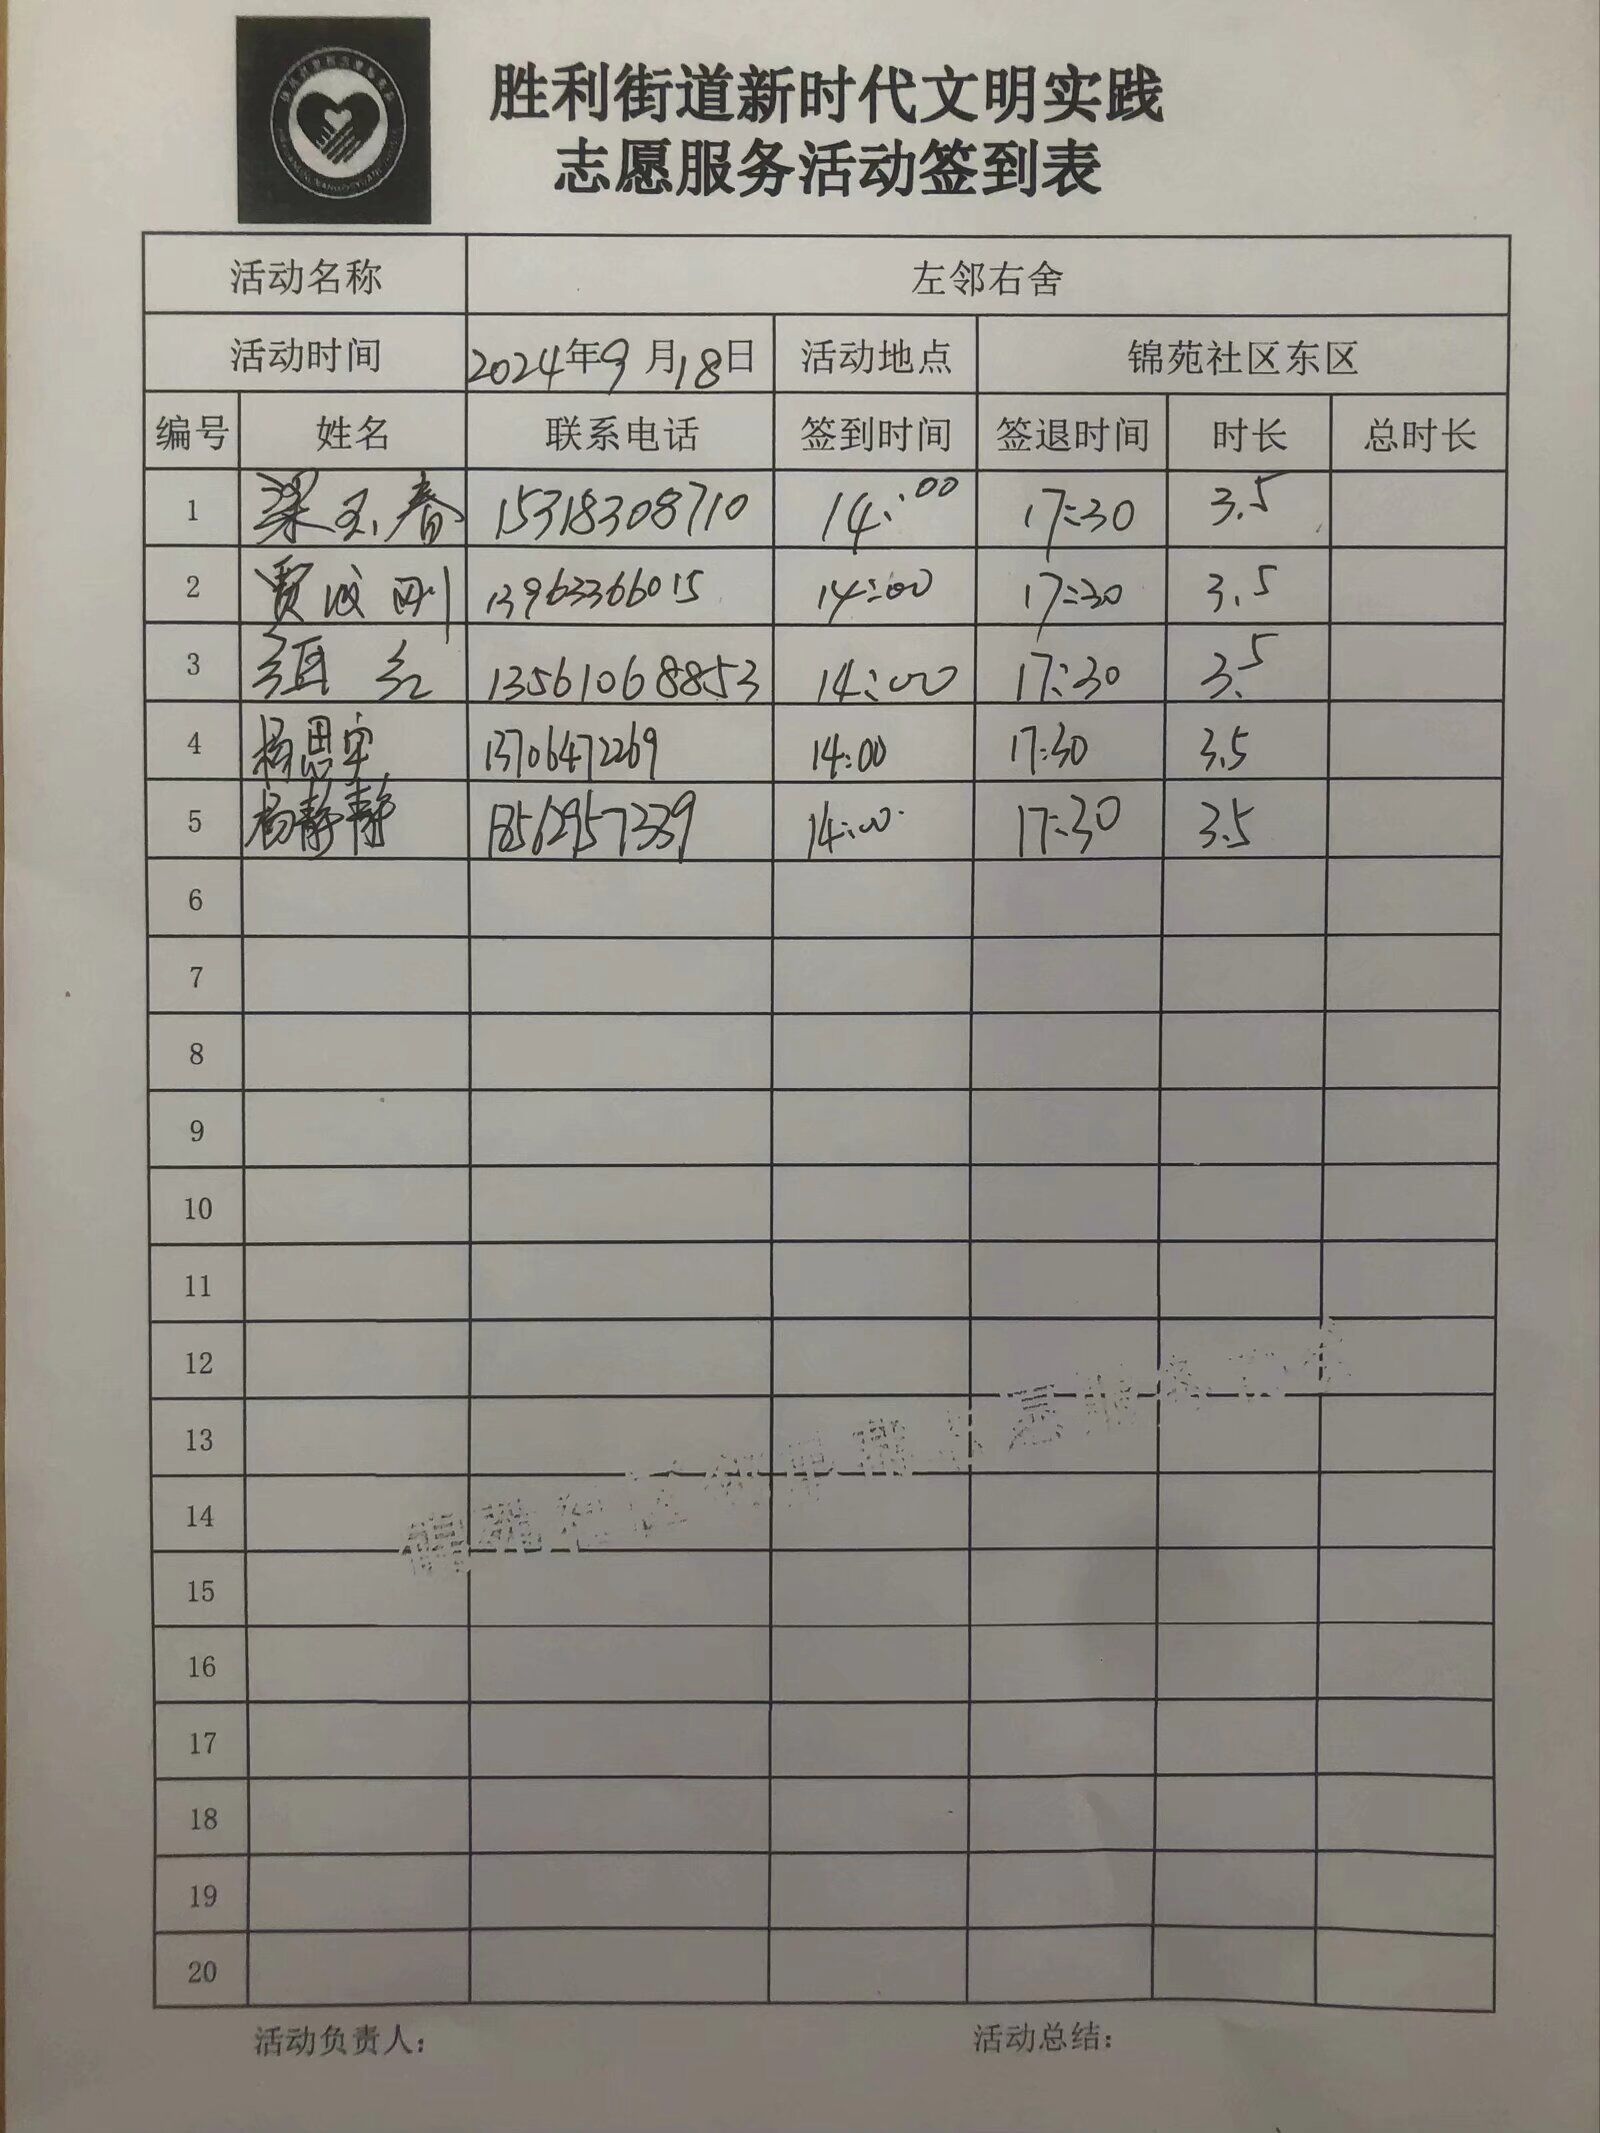 胜利街道新时代文明实践
志愿服务活动签到表
活动名称 左邻右舍
活动时间 2024年9月18日 活动地点 锦苑社区东区
编号 姓名 联系电话 签到时间 签退时间 时长 总时长
1 梁玉春 15318308710 14:00 17:30 3.5
2 贾 刚 13963366015 14:00 17:30 3.5
3 红 13561068853 14:00 17:30 3.5
4 杨思宇 13706472269 14:00 17:30 3.5
5 杨静静 18562957389 14:00 17:30 3.5
6
7
8
9
10
11
12
13
14
15
16
17
18
19
20
活动负责人: 活动总结: